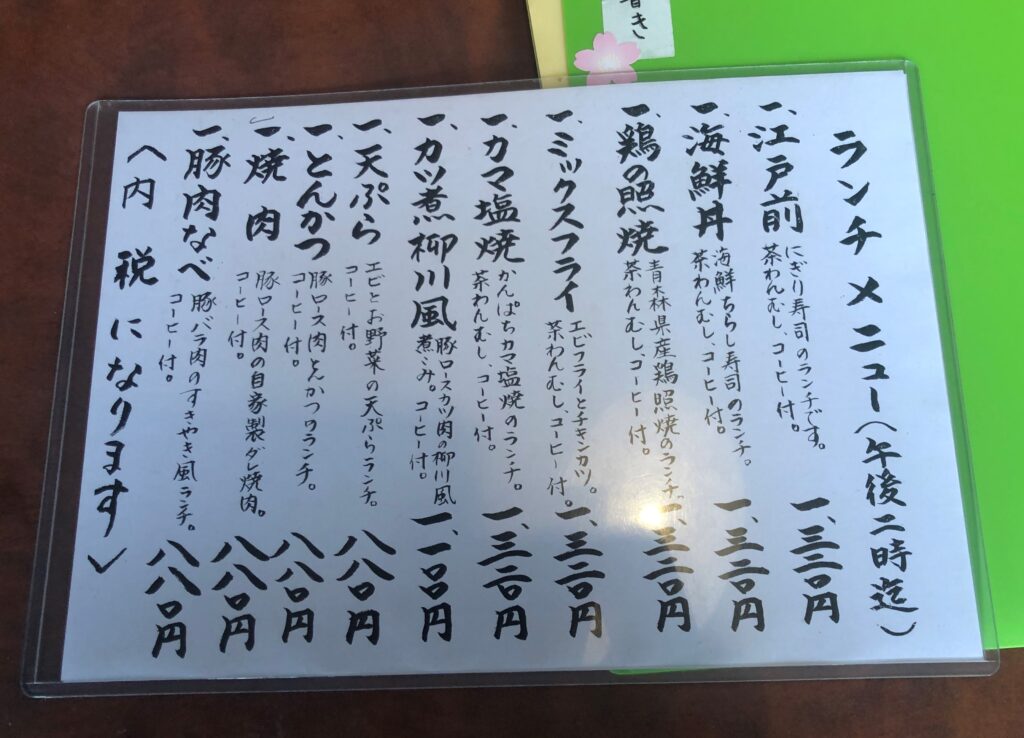 ランチメニュー(午後二時迄)
一、江戸前
にぎり寿司のランチです。
茶わんむし、コーヒー付。
一、三二〇円
一、海鮮丼
海鮮ちらし寿司のランチ。
茶わんむし、コーヒー付。
一、三二〇円
一、鶏の照焼
青森県産鶏照焼のランチ。
茶わんむし、コーヒー付。
一、三二〇円
一、ミックスフライ
エビフライとチキンカツ。
茶わんむし、コーヒー付。
一、三二〇円
一、カマ塩焼
かんぱちカマ塩焼のランチ。
茶わんむし、コーヒー付。
一、三二〇円
一、カツ煮柳川風
豚ロースカツ肉の柳川風
煮こみ。コーヒー付。
一、一〇〇円
一、天ぷら
エビとお野菜の天ぷらランチ。
コーヒー付。
八八〇円
一、とんかつ
豚ロース肉とんかつランチ。
コーヒー付。
八八〇円
一、焼肉
豚ロース肉の自家製ダレ焼肉。
コーヒー付。
八八〇円
一、豚肉なべ
豚バラ肉のすきやき風ランチ。
コーヒー付。
八八〇円
(内税になります)
書き